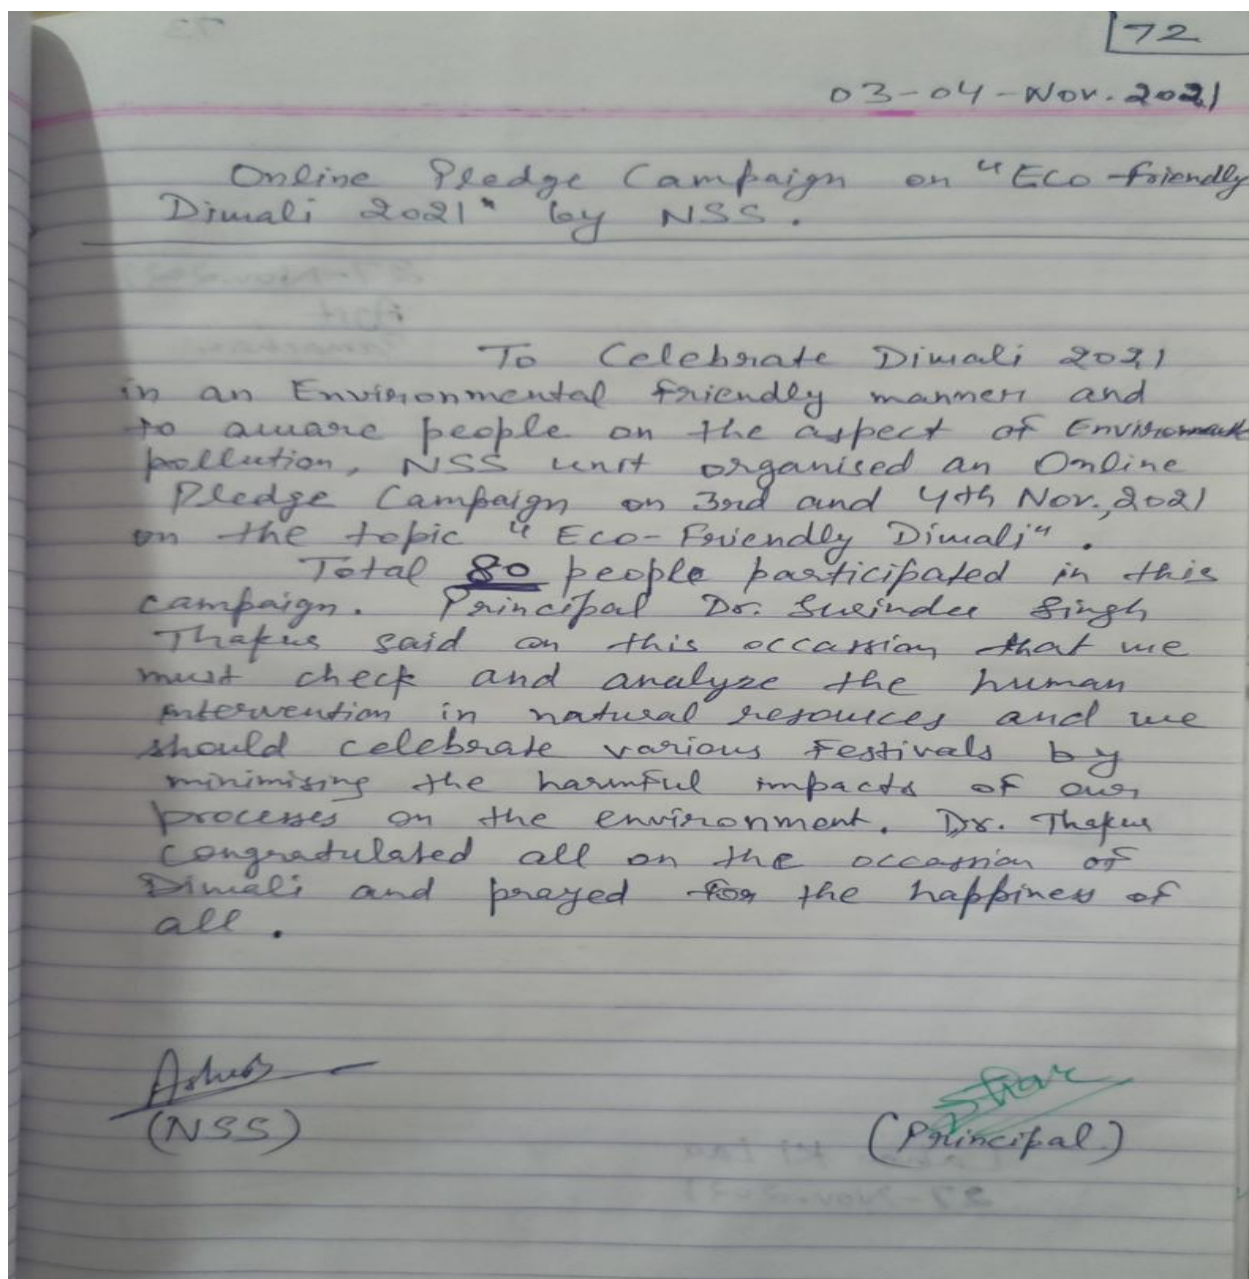 72
03-04-Nov. 2021
Online Pledge Campaign on "Eco-friendly
Diwali 2021" by NSS.
To Celebrate Diwali 2021
in an Environmental friendly manner and
to aware people on the aspect of Environment
pollution, NSS unit organised an Online
Pledge Campaign on 3rd and 4th Nov., 2021
on the topic "Eco-Friendly Diwali".
Total 80 people participated in this
campaign. Principal Dr. Surinder Singh
Thakur said on this occassion that we
must check and analyze the human
intervention in natural resources and we
should celebrate various Festivals by
minimising the harmful impacts of our
processes on the environment. Dr. Thakur
congratulated all on the occassion of
Diwali and prayed for the happiness of
all.
(NSS)
(Principal)